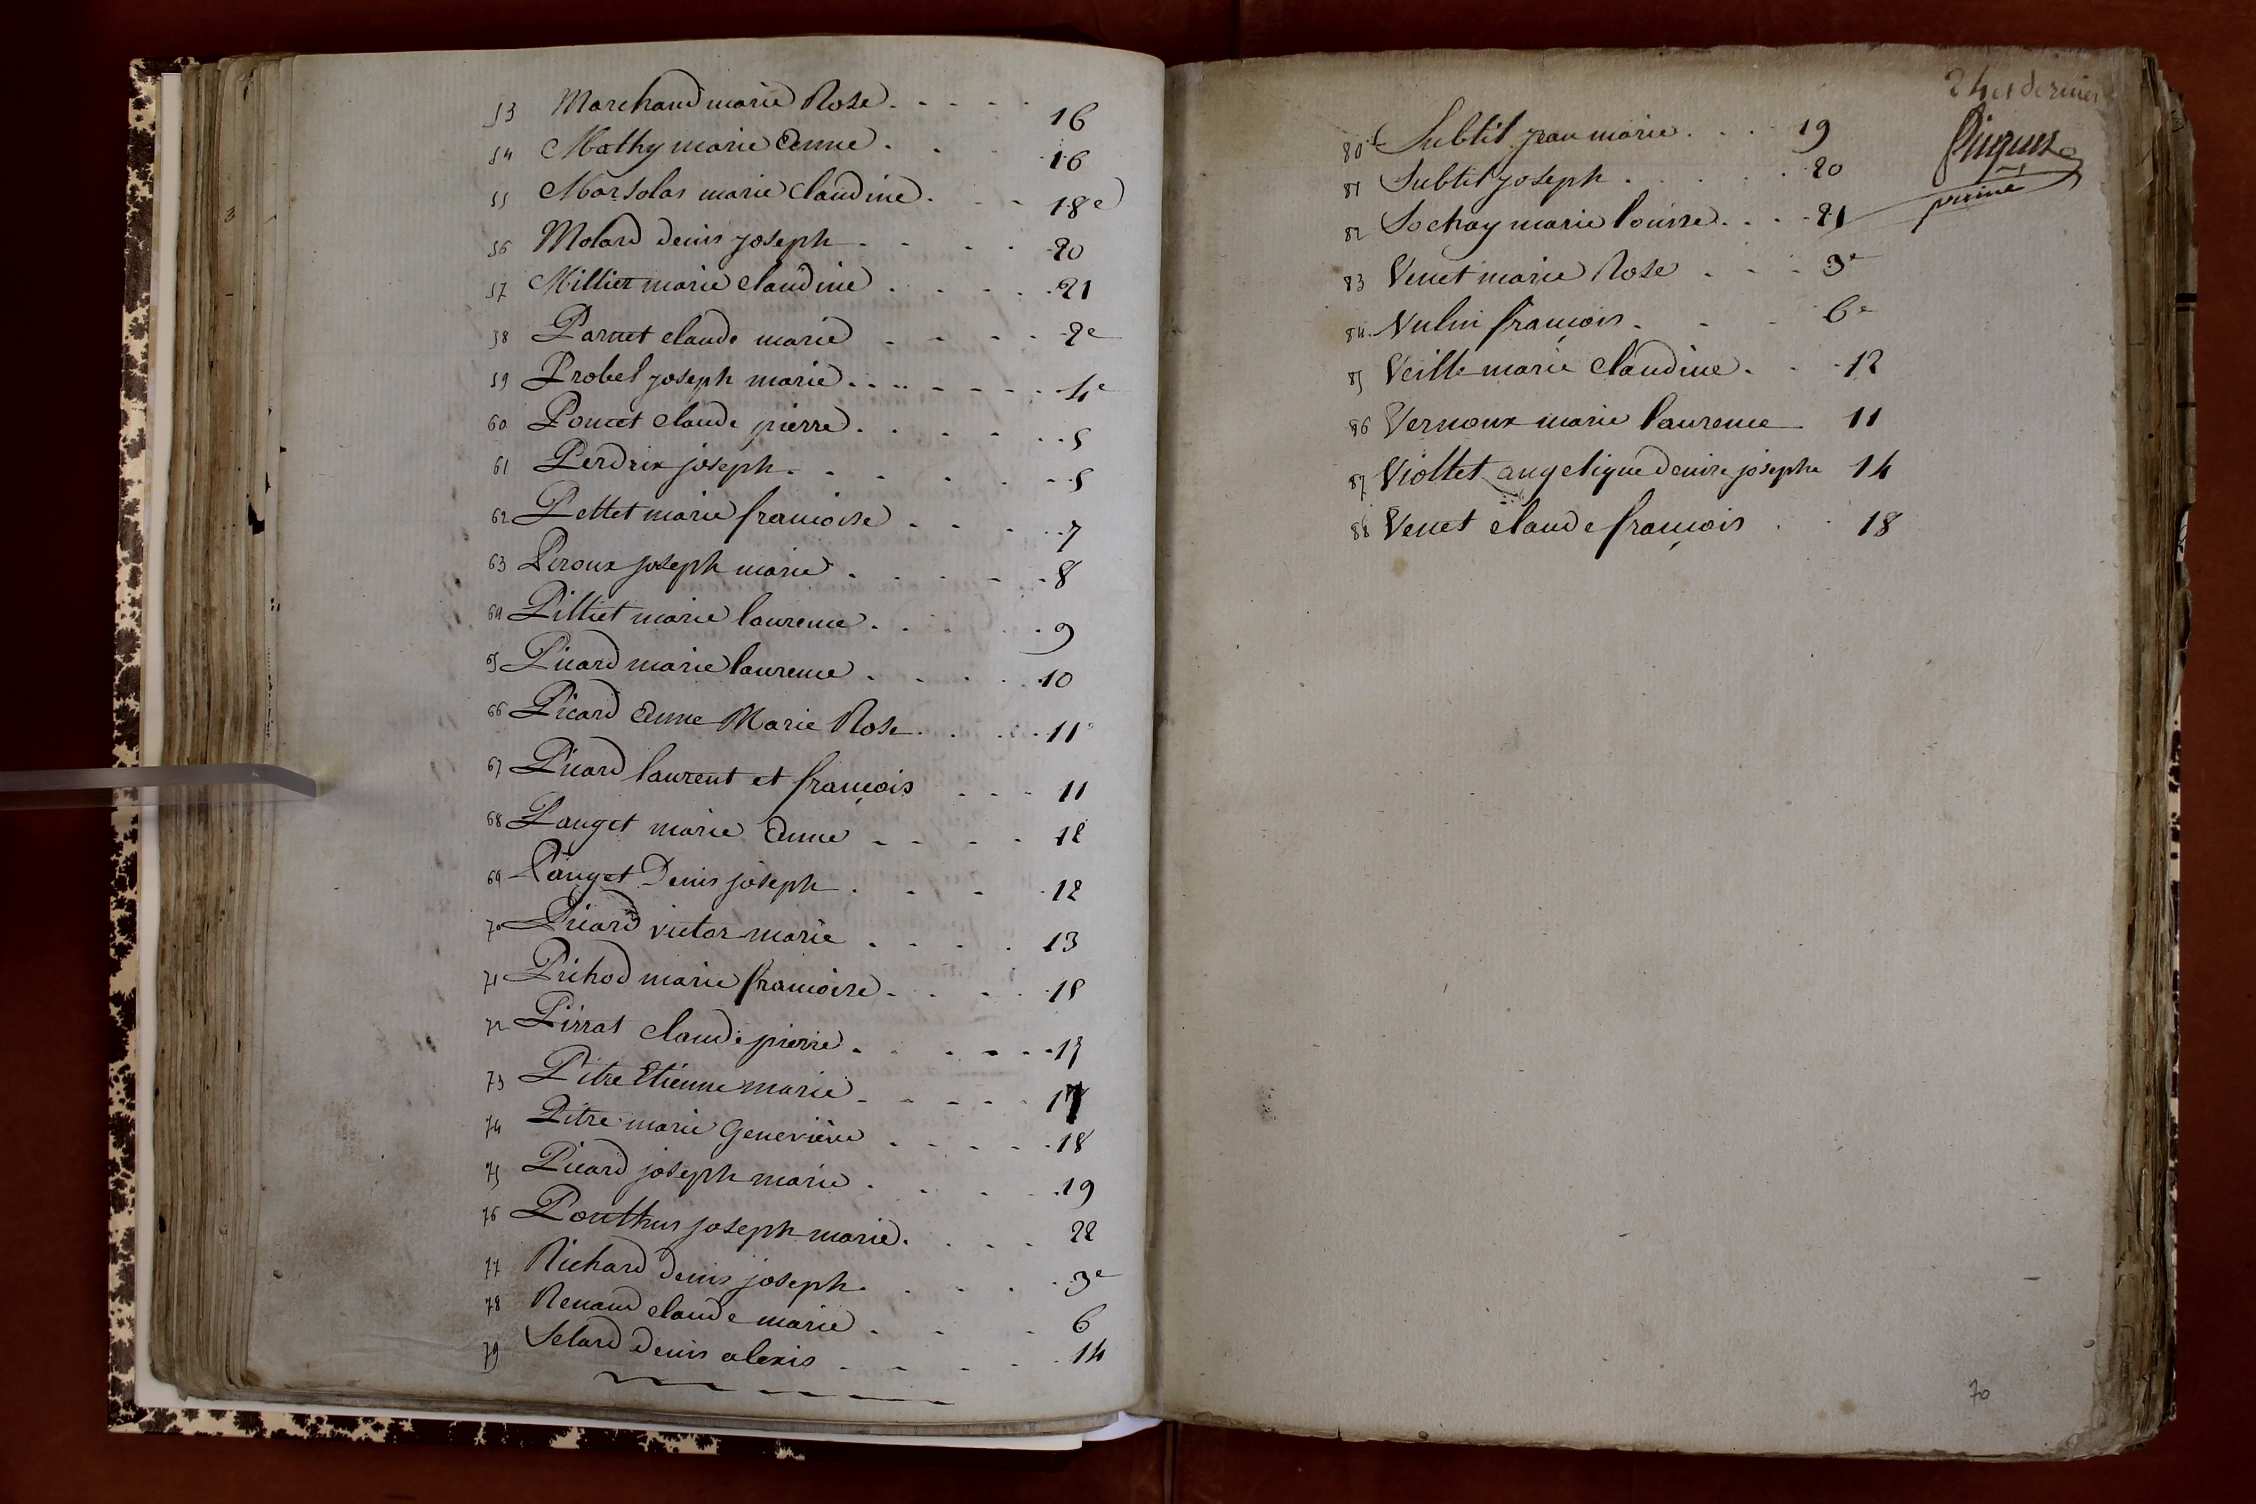 53 Marchand marie Rose - - - - 16
54 Mathy marie Anne - - 16
55 Marsolas marie Claudine - - - 18e
56 Molard denis joseph - - - - 20
57 Millier marie claudine - - - - 21
58 Parnet claude marie - - - - 2e
59 Probel joseph marie - - - - 4e
60 Poncet claude pierre - - - - 5
61 Perdrix joseph - - - - 5
62 Pettet marie francoise - - - - 7
63 Peroux joseph marie - - - - 8
64 Pilliet marie laurence - - - - 9
65 Picard marie laurence - - - - 10
66 Picard Anne Marie Rose - - - 11e
67 Picard laurent et françois - - - 11
68 Panget marie Anne - - - - 12
69 Panget Denis joseph - - - 12
70 Picard victor marie - - - - 13
71 Prichod marie francoise - - - - 15
72 Pirrat claude pierre - - - - 17
73 Pitre Etienne marie - - - - 17
74 Pitre marie Geneviève - - - - 18
75 Picard joseph marie - - - - 19
76 Ponthus joseph marie - - - - 22
77 Richard denis joseph - - - - 3e
78 Renaud claude marie - - - 6
79 Selard Denis alexis - - - - 14
24 et dernier
80 Subtil jean marie - - - 19
81 Subtil joseph - - - - 20
82 Sochay marie louise - - - 21
83 Venet marie Rose - - - 3e
84 Vulin françois - - - 6e
85 Veille marie Claudine - - - 12
86 Vernoux marie laurence 11
87 Viollet angelique denise josephe 14
88 Venet claude françois - - 18
70